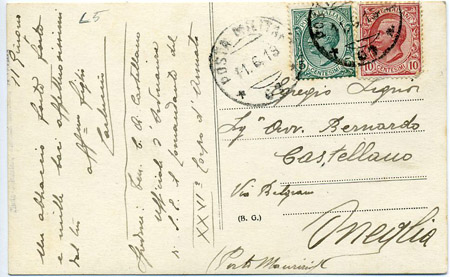 L5
11 Giugno
Un abbraccio forte forte
e mille baci affettuosissimi
dal tuo
aff.mo figlio
Spedisce: Ten. C. B. Castellano
ufficiale d'ordinanza
di S.E. il Comandante del
XXVI° Corpo d'Armata
POSTA MILITARE
11.6.18
CENTESIMI
10 CENTESIMI 10
Egregio Signor
Sig. Avv. Bernardo
Castellano
Via Belgrano
(B. G.)
Oneglia
(Porto Maurizio)